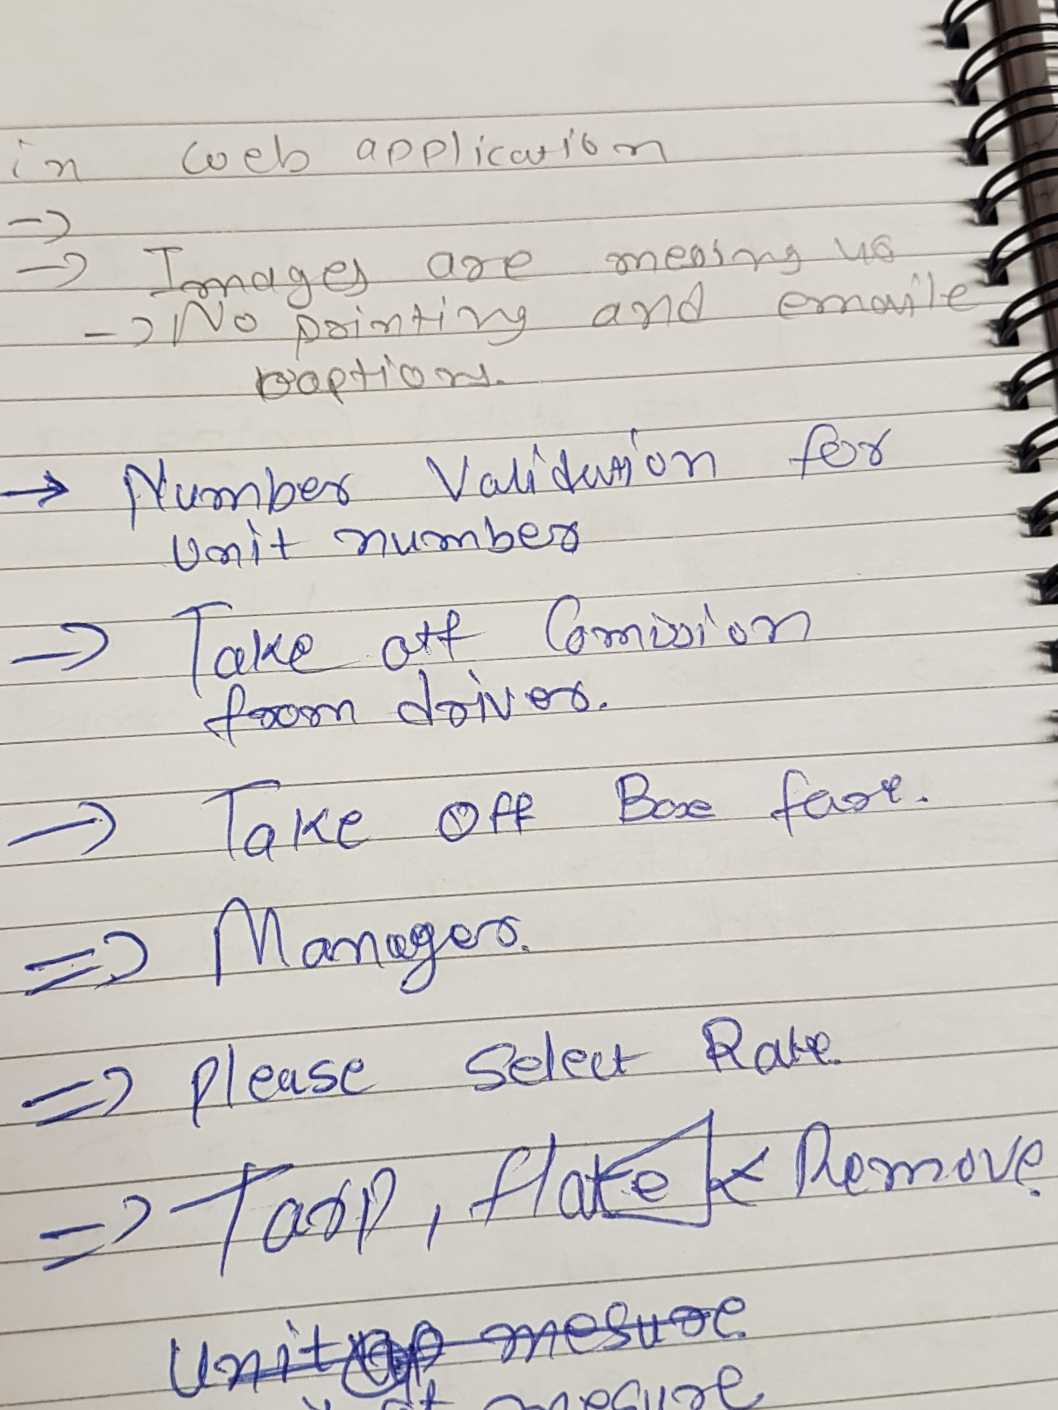 in web application
->
-> Images are mesing us
-> No printing and emaile
options.
→ Number Validation for
Unit number
=> Take off Comission
from driver.
-> Take off Base fare.
=> Manager.
=> please Select Rate.
=> Tarp, flate & Remove
Unit mesure
mesure